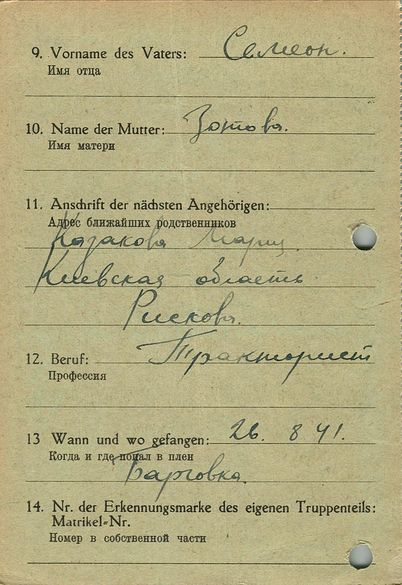 9. Vorname des Vaters: Семеон.
Имя отца
10. Name der Mutter: Зотова.
Имя матери
11. Anschrift der nächsten Angehörigen:
Адрес ближайших родственников
Казакова Мария.
Киевская область
Рискова.
12. Beruf: Тракторист
Профессия
13 Wann und wo gefangen: 26. 8 41.
Когда и где попал в плен
14. Nr. der Erkennungsmarke des eigenen Truppenteils:
Matrikel-Nr.
Номер в собственной части